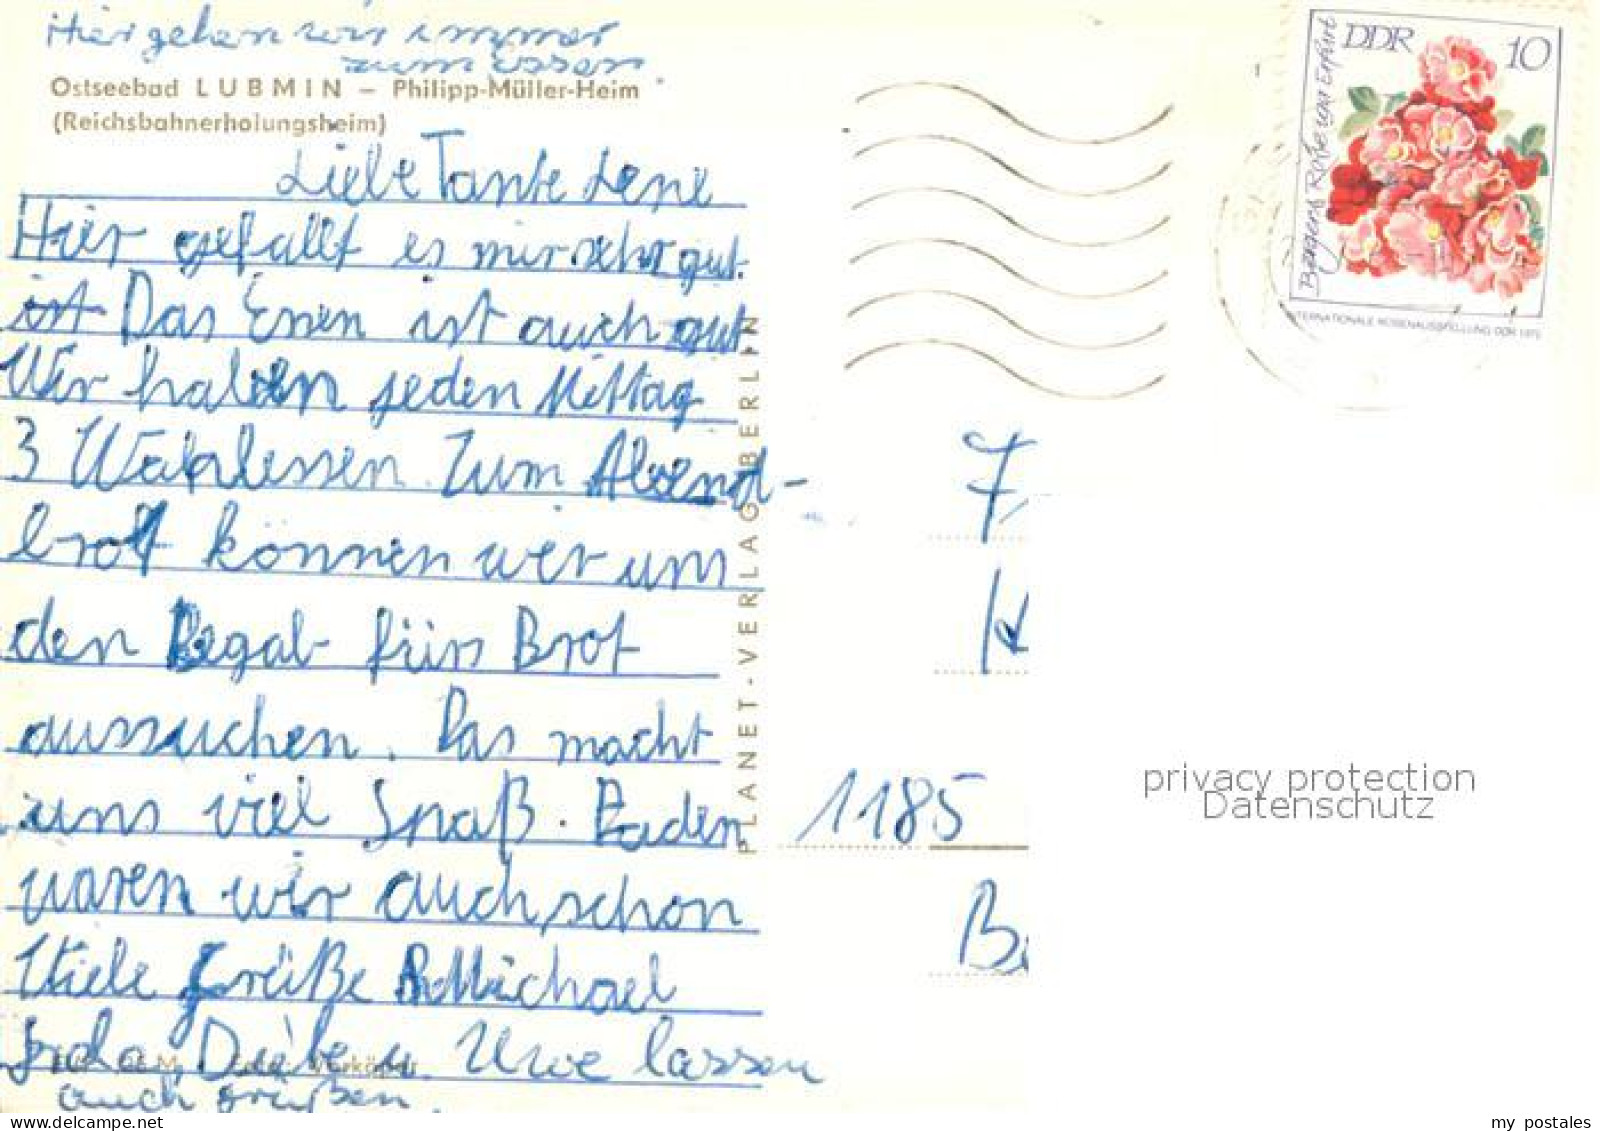 Hier gehen wir immer
zum essen.
Ostseebad LUBMIN – Philipp-Müller-Heim
(Reichsbahnerholungsheim)
Liebe Tante Lene
Hier gefällt es mir sehr gut.
ist Das Essen ist auch gut
Wir haben jeden Mittag
3 Wahlessen. Zum Abend-
brot können wir uns
den Regal fürs Brot
aussuchen. Das macht
uns viel Spaß. Baden
waren wir auch schon
Viele Grüße Michael
u. Uwe lassen
auch grüßen.
PLANET-VERLAG BERLIN
DDR 10
Bangers Rose iga Erfurt
INTERNATIONALE ROSENAUSSTELLUNG DDR 1972
F.
K
1185
B
privacy protection
Datenschutz
www.delcampe.net
my_postales